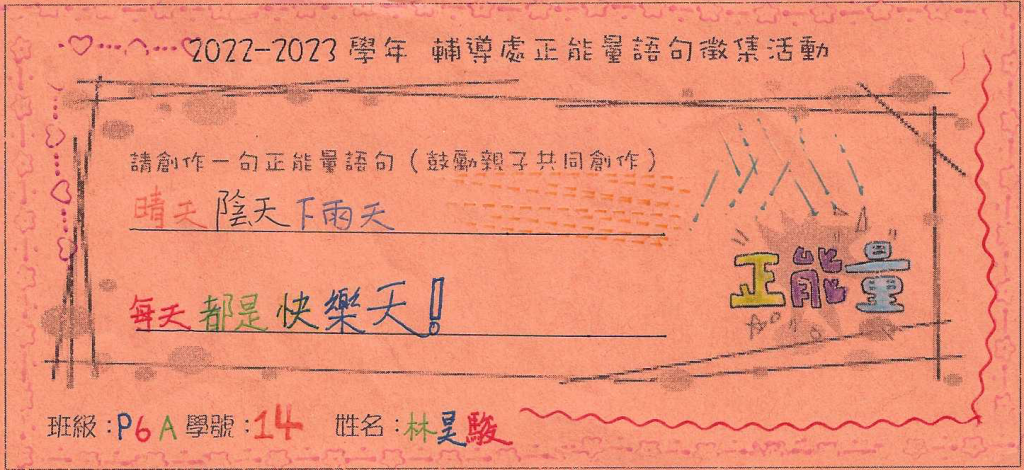 2022-2023 學年 輔導處正能量語句徵集活動
請創作一句正能量語句（鼓勵親子共同創作）
晴天陰天下雨天
正能量
每天都是快樂天！
班級：P6A 學號：14 姓名：林昊駿